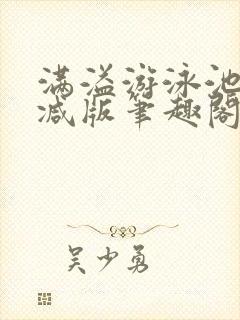 满溢游泳池
减版笔趣阁
吴少勇